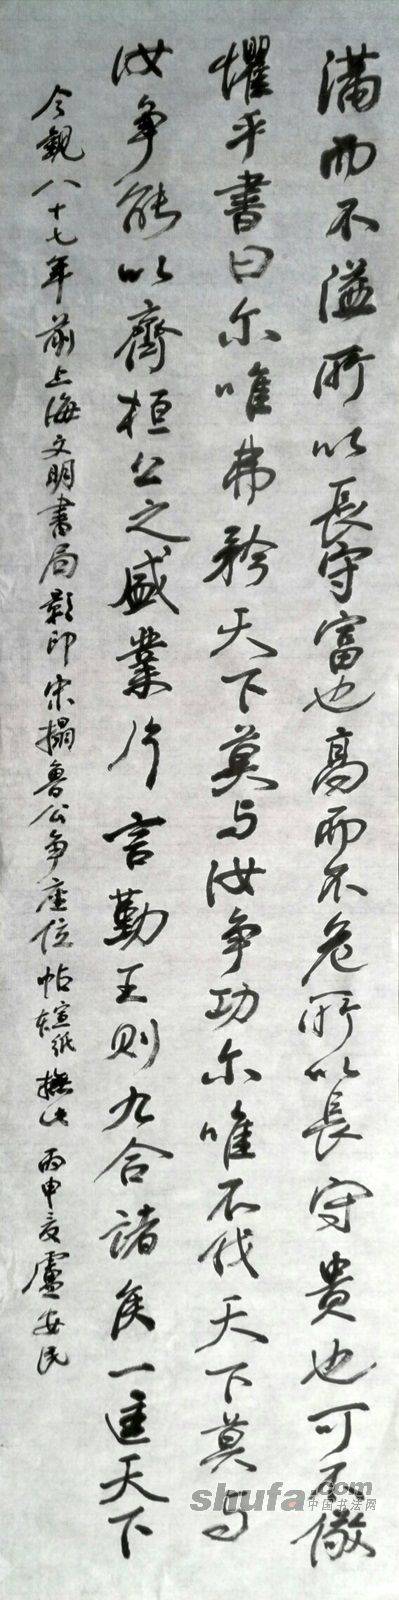 满而不溢所以長守富也高而不危所以長守貴也可不儆
懼乎書曰尔唯弗矜天下莫与汝争功尔唯不伐天下莫与
汝争能以齊桓公之盛業片言勤王則九合諸侯一匡天下
今観八十七年前上海文明書局影印宋搨魯公争座位帖 紙撫此 丙申夏盧安民
shufa.com
中国书法网